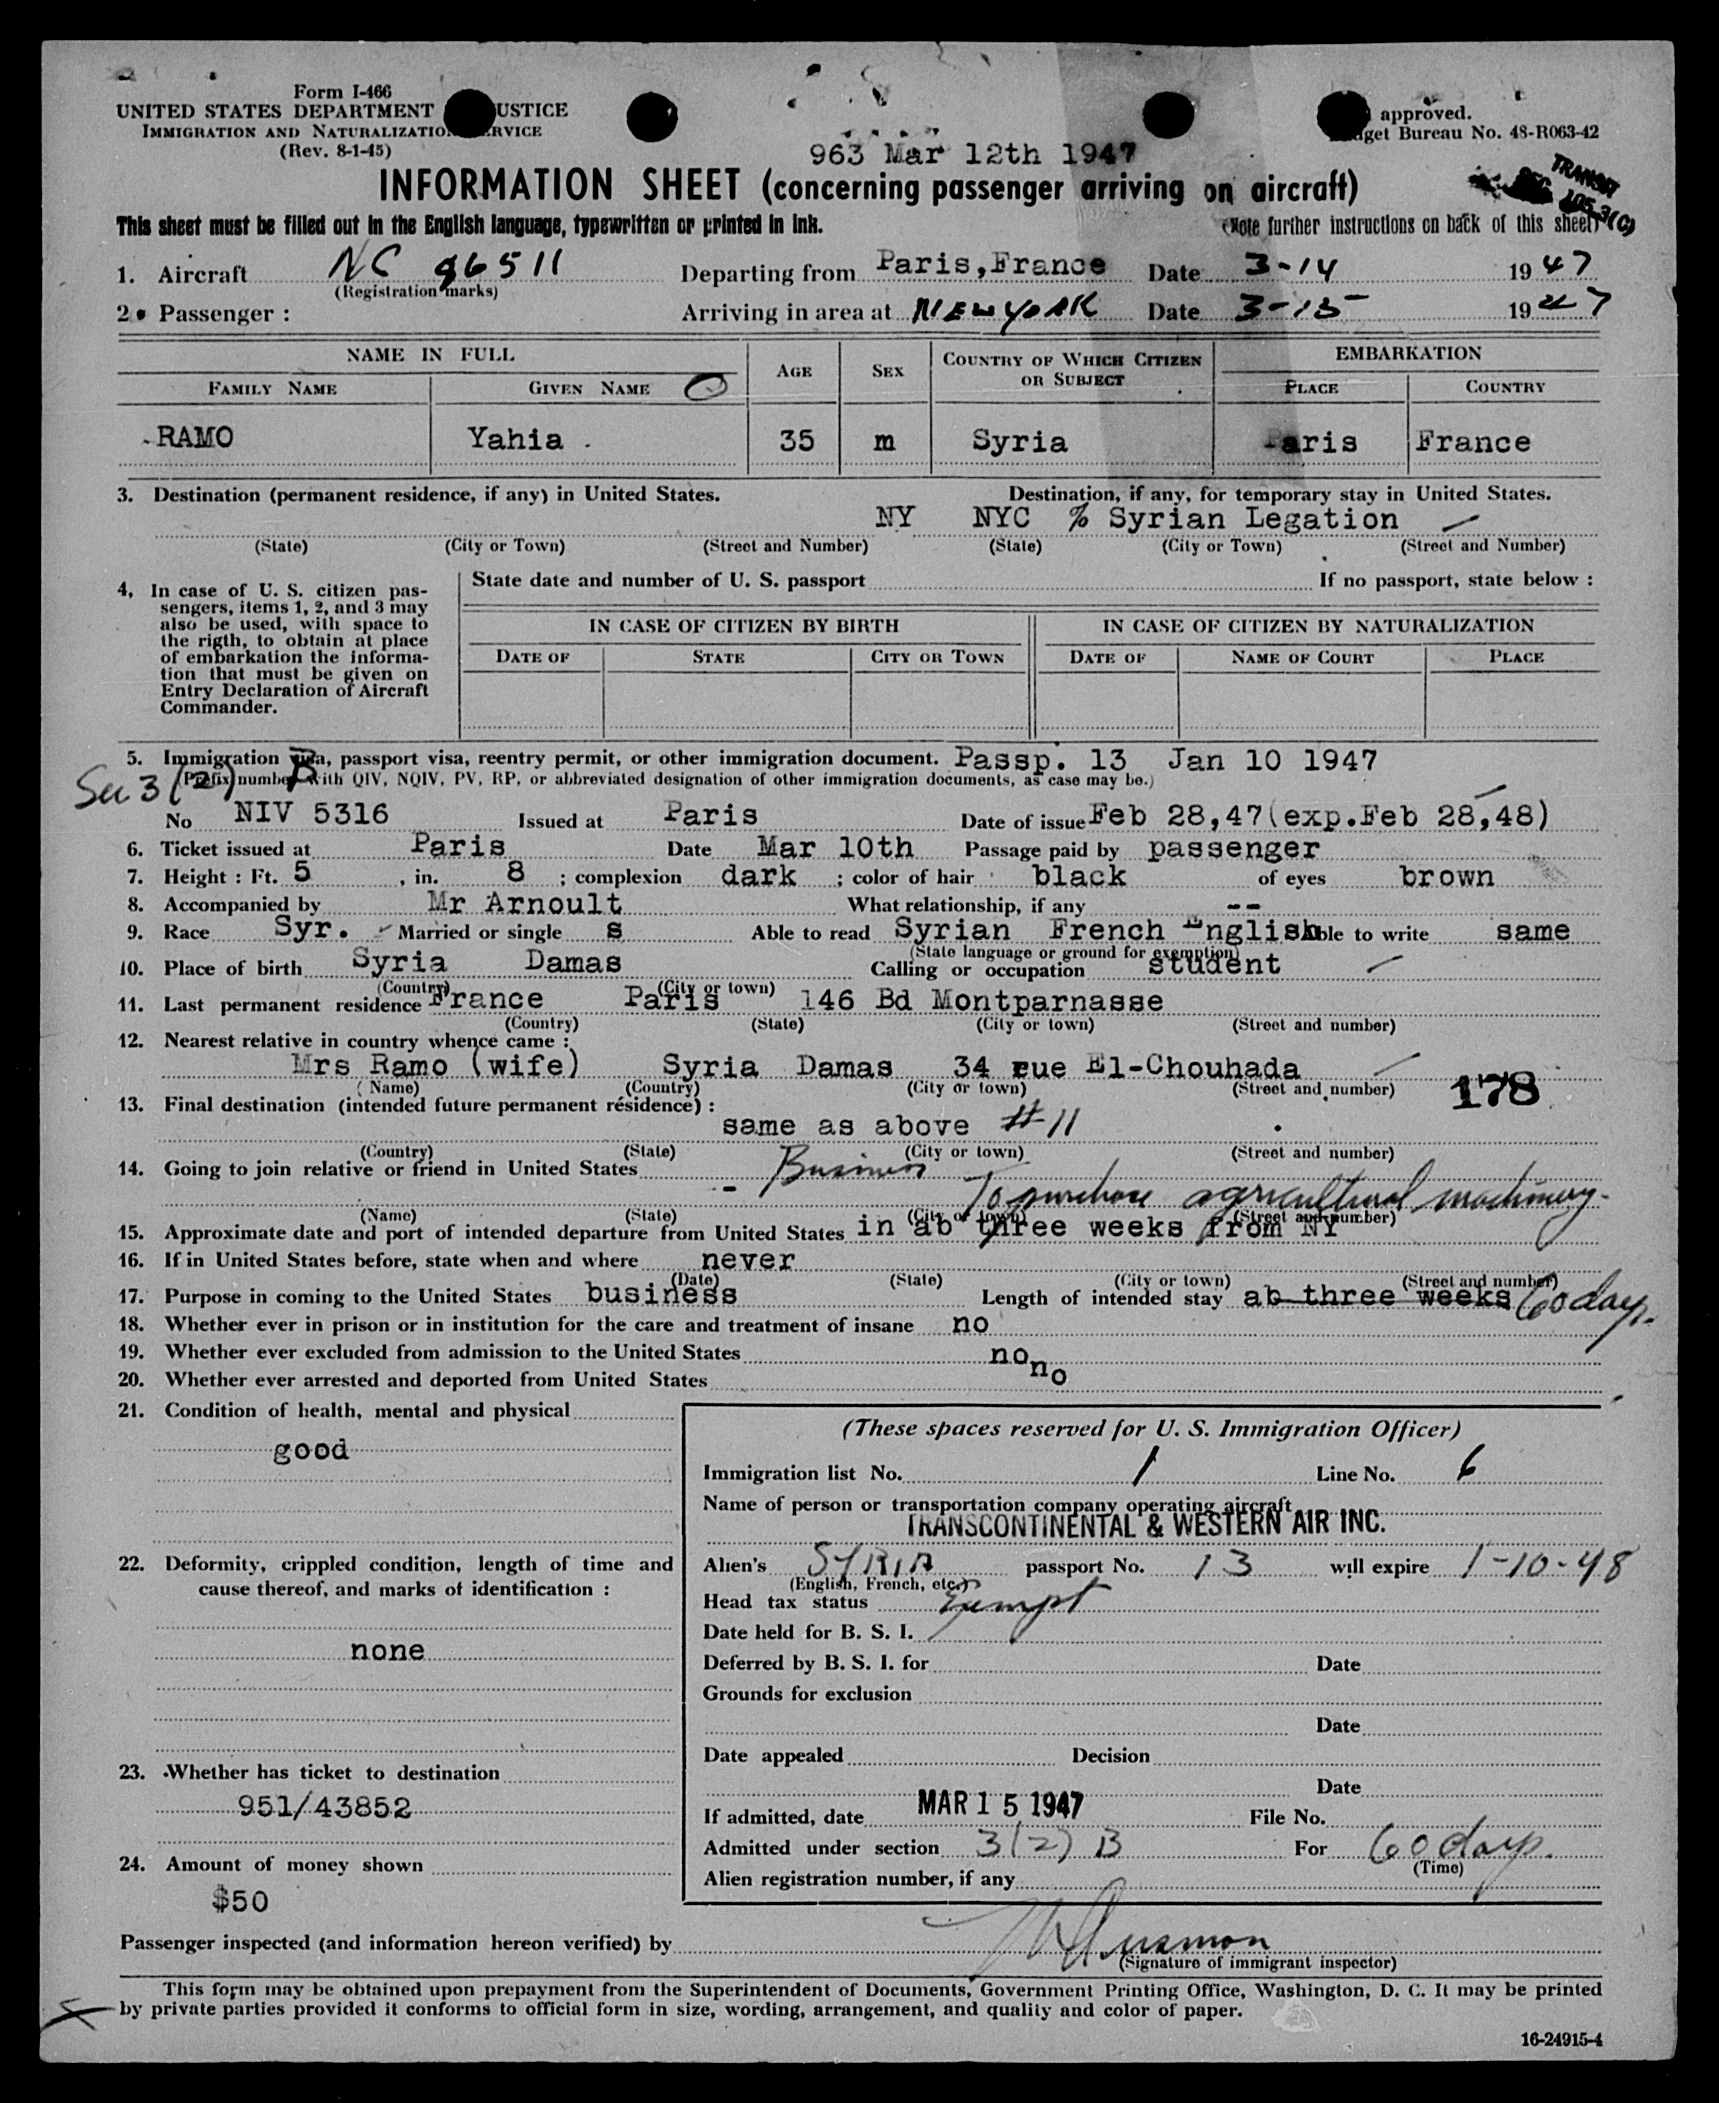 Form I-466
UNITED STATES DEPARTMENT USTICE
IMMIGRATION AND NATURALIZATION RVICE
(Rev. 8-1-45)
approved.
get Bureau No. 43-R063-42
963 Mar 12th 1947
INFORMATION SHEET (concerning passenger arriving on aircraft)
TRANSIT
105.3(C)
This sheet must be filled out in the English language, typewritten or printed in ink.
(Note further instructions on back of this sheet)
1. Aircraft NC 96511 Departing from Paris,France Date 3-14 1947
(Registration marks)
2. Passenger : Arriving in area at NEW YORK Date 3-15 1947
NAME IN FULL AGE SEX COUNTRY OF WHICH CITIZEN OR SUBJECT EMBARKATION
FAMILY NAME GIVEN NAME PLACE COUNTRY
RAMO Yahia 35 m Syria Paris France
3. Destination (permanent residence, if any) in United States. Destination, if any, for temporary stay in United States.
NY NYC % Syrian Legation
(State) (City or Town) (Street and Number) (State) (City or Town) (Street and Number)
4, In case of U. S. citizen pas-
sengers, items 1, 2, and 3 may
also be used, with space to
the rigth, to obtain at place
of embarkation the informa-
tion that must be given on
Entry Declaration of Aircraft
Commander.
State date and number of U. S. passport If no passport, state below :
IN CASE OF CITIZEN BY BIRTH IN CASE OF CITIZEN BY NATURALIZATION
DATE OF STATE CITY OR TOWN DATE OF NAME OF COURT PLACE
5. Immigration visa, passport visa, reentry permit, or other immigration document. Passp. 13 Jan 10 1947
Sec 3 (2) B
(Prefix number with QIV, NQIV, PV, RP, or abbreviated designation of other immigration documents, as case may be.)
No NIV 5316 Issued at Paris Date of issue Feb 28,47(exp.Feb 28,48)
6. Ticket issued at Paris Date Mar 10th Passage paid by passenger
7. Height : Ft. 5 , in. 8 ; complexion dark ; color of hair black of eyes brown
8. Accompanied by Mr Arnoult What relationship, if any --
9. Race Syr. Married or single s Able to read Syrian French English Able to write same
(State language or ground for exemption)
10. Place of birth Syria Damas Calling or occupation student
(Country) (City or town)
11. Last permanent residence France Paris 146 Bd Montparnasse
(Country) (State) (City or town) (Street and number)
12. Nearest relative in country whence came :
Mrs Ramo (wife) Syria Damas 34 rue El-Chouhada
(Name) (Country) (City or town) (Street and number)
178
13. Final destination (intended future permanent résidence) :
same as above #11
(Country) (State) (City or town) (Street and number)
14. Going to join relative or friend in United States Business
- To purchase agricultural machinery-
(Name) (State) (City or town) (Street and number)
15. Approximate date and port of intended departure from United States in ab three weeks from NY
16. If in United States before, state when and where never
(Date) (State) (City or town) (Street and number)
17. Purpose in coming to the United States business Length of intended stay ab three weeks 60 days.
18. Whether ever in prison or in institution for the care and treatment of insane no
19. Whether ever excluded from admission to the United States no
20. Whether ever arrested and deported from United States no
21. Condition of health, mental and physical
good
22. Deformity, crippled condition, length of time and
cause thereof, and marks of identification :
none
23. Whether has ticket to destination
951/43852
24. Amount of money shown
$50
(These spaces reserved for U. S. Immigration Officer)
Immigration list No. 1 Line No. 6
Name of person or transportation company operating aircraft
TRANSCONTINENTAL & WESTERN AIR INC.
Alien's SYRIA passport No. 13 will expire 1-10-48
(English, French, etc.)
Head tax status Exempt
Date held for B. S. I.
Deferred by B. S. I. for Date
Grounds for exclusion
Date
Date appealed Decision
Date
If admitted, date MAR 15 1947 File No.
Admitted under section 3(2) B For 60 days.
(Time)
Alien registration number, if any
Passenger inspected (and information hereon verified) by
(Signature of immigrant inspector)
This form may be obtained upon prepayment from the Superintendent of Documents, Government Printing Office, Washington, D. C. It may be printed
by private parties provided it conforms to official form in size, wording, arrangement, and quality and color of paper.
16-24915-4